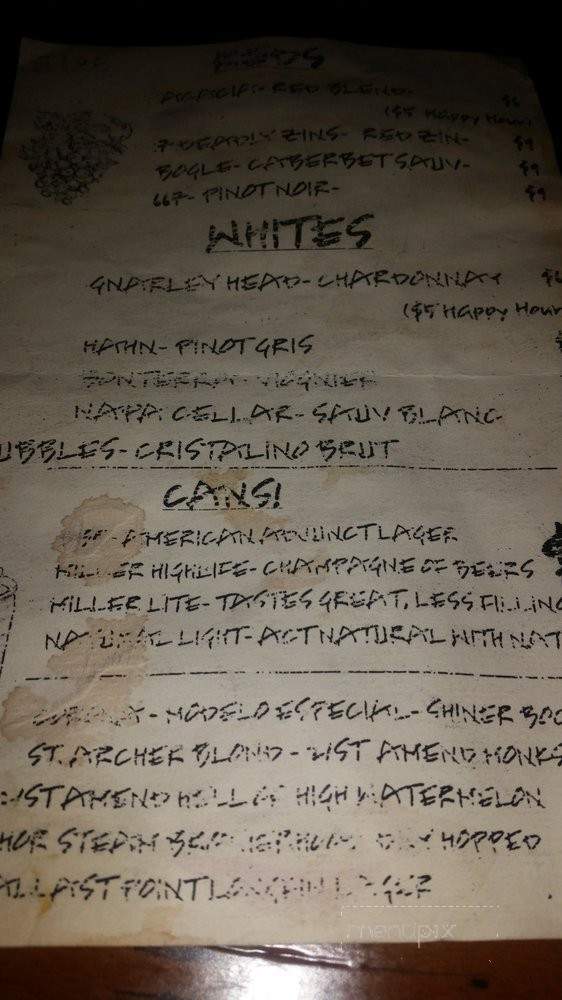 REDS
ACACIA- RED BLEND- $6
($5 Happy Hour)
7 DEADLY ZINS- RED ZIN- $9
BOGLE- CABERBET SAUV- $9
667- PINOT NOIR- $9
WHITES
GNARLEY HEAD- CHARDONNAY
($5 Happy Hour
HAHN- PINOT GRIS
BONTERRA- VIOGNIER
NAPA CELLAR- SAUV BLANC
UBBLES- CRISTALINO BRUT
CANS!
AMERICAN ADJUNCT LAGER
MILLER HIGHLIFE- CHAMPAGNE OF BEERS
MILLER LITE- TASTES GREAT, LESS FILLING
NATURAL LIGHT- ACT NATURAL WITH NAT
- MODELO ESPECIAL- SHINER BOC
ST. ARCHER BLOND - 21ST AMEND MONKS
21ST AMEND HELL OF HIGH WATERMELON
HOR STEAM DRY HOPPED
ALLAST POINT LAGER
menupix